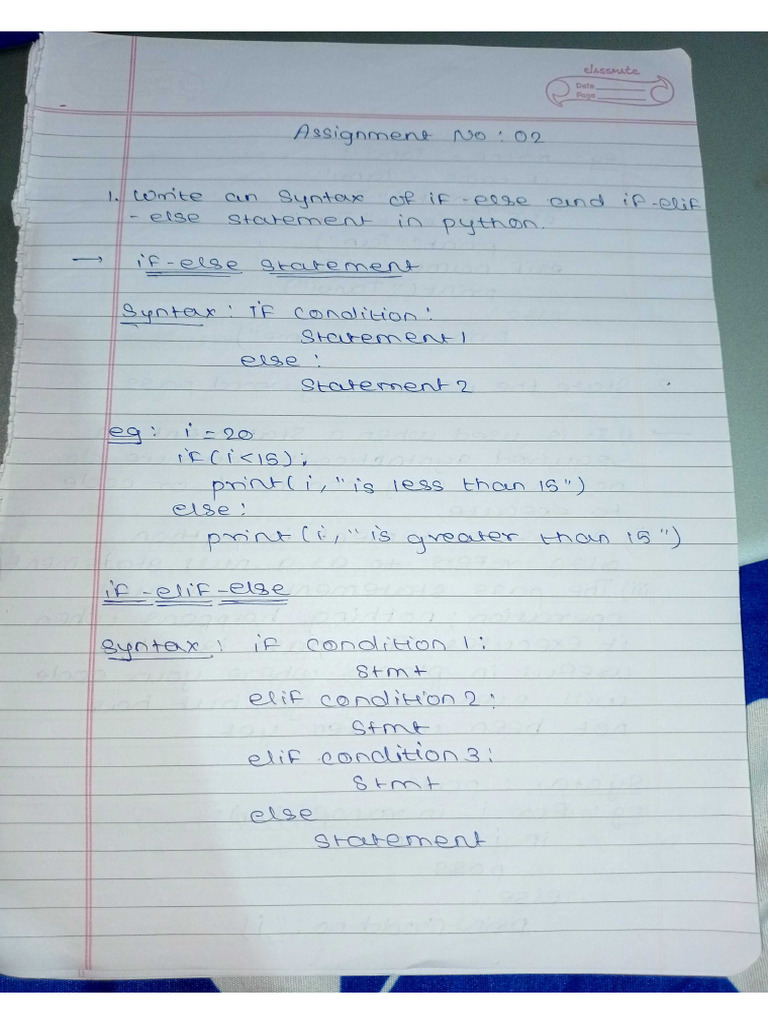 classmate
Date
Page
Assignment No : 02
1. Write an syntax of if-else and if-elif
-else statement in python.
→ if-else statement
Syntax : IF condition :
Statement 1
else :
Statement 2
eg : i = 20
if(i<15);
print(i,"is less than 15")
else :
print(i,"is greater than 15")
if-elif-else
Syntax : if condition 1 :
Stmt
elif condition 2 :
Stmt
elif condition 3 :
Stmt
else
Statement